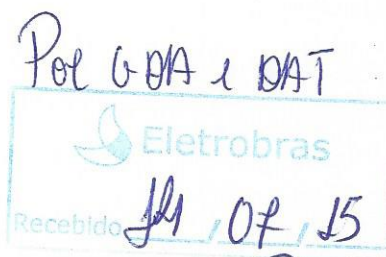 Por GDA e DAT
Eletrobras
Recebido 14 / 07 / 15